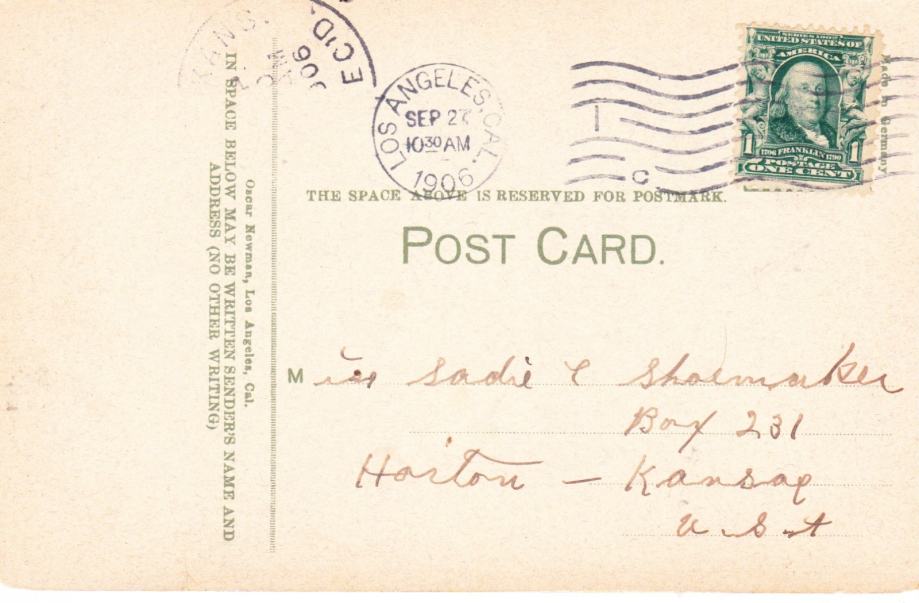 KANS.
REC'D.
LOS ANGELES, CAL.
SEP 27
10 30 AM
1906
1
C
SERIES 1902
UNITED STATES OF
AMERICA
1706 FRANKLIN 1790
1 1
POSTAGE
ONE CENT
Made in Germany
THE SPACE ABOVE IS RESERVED FOR POSTMARK.
POST CARD.
Oscar Newman, Los Angeles, Cal.
IN SPACE BELOW MAY BE WRITTEN SENDER'S NAME AND
ADDRESS (NO OTHER WRITING)
Miss Sadie E Shoemaker
Box 231
Horton — Kansas
U S A